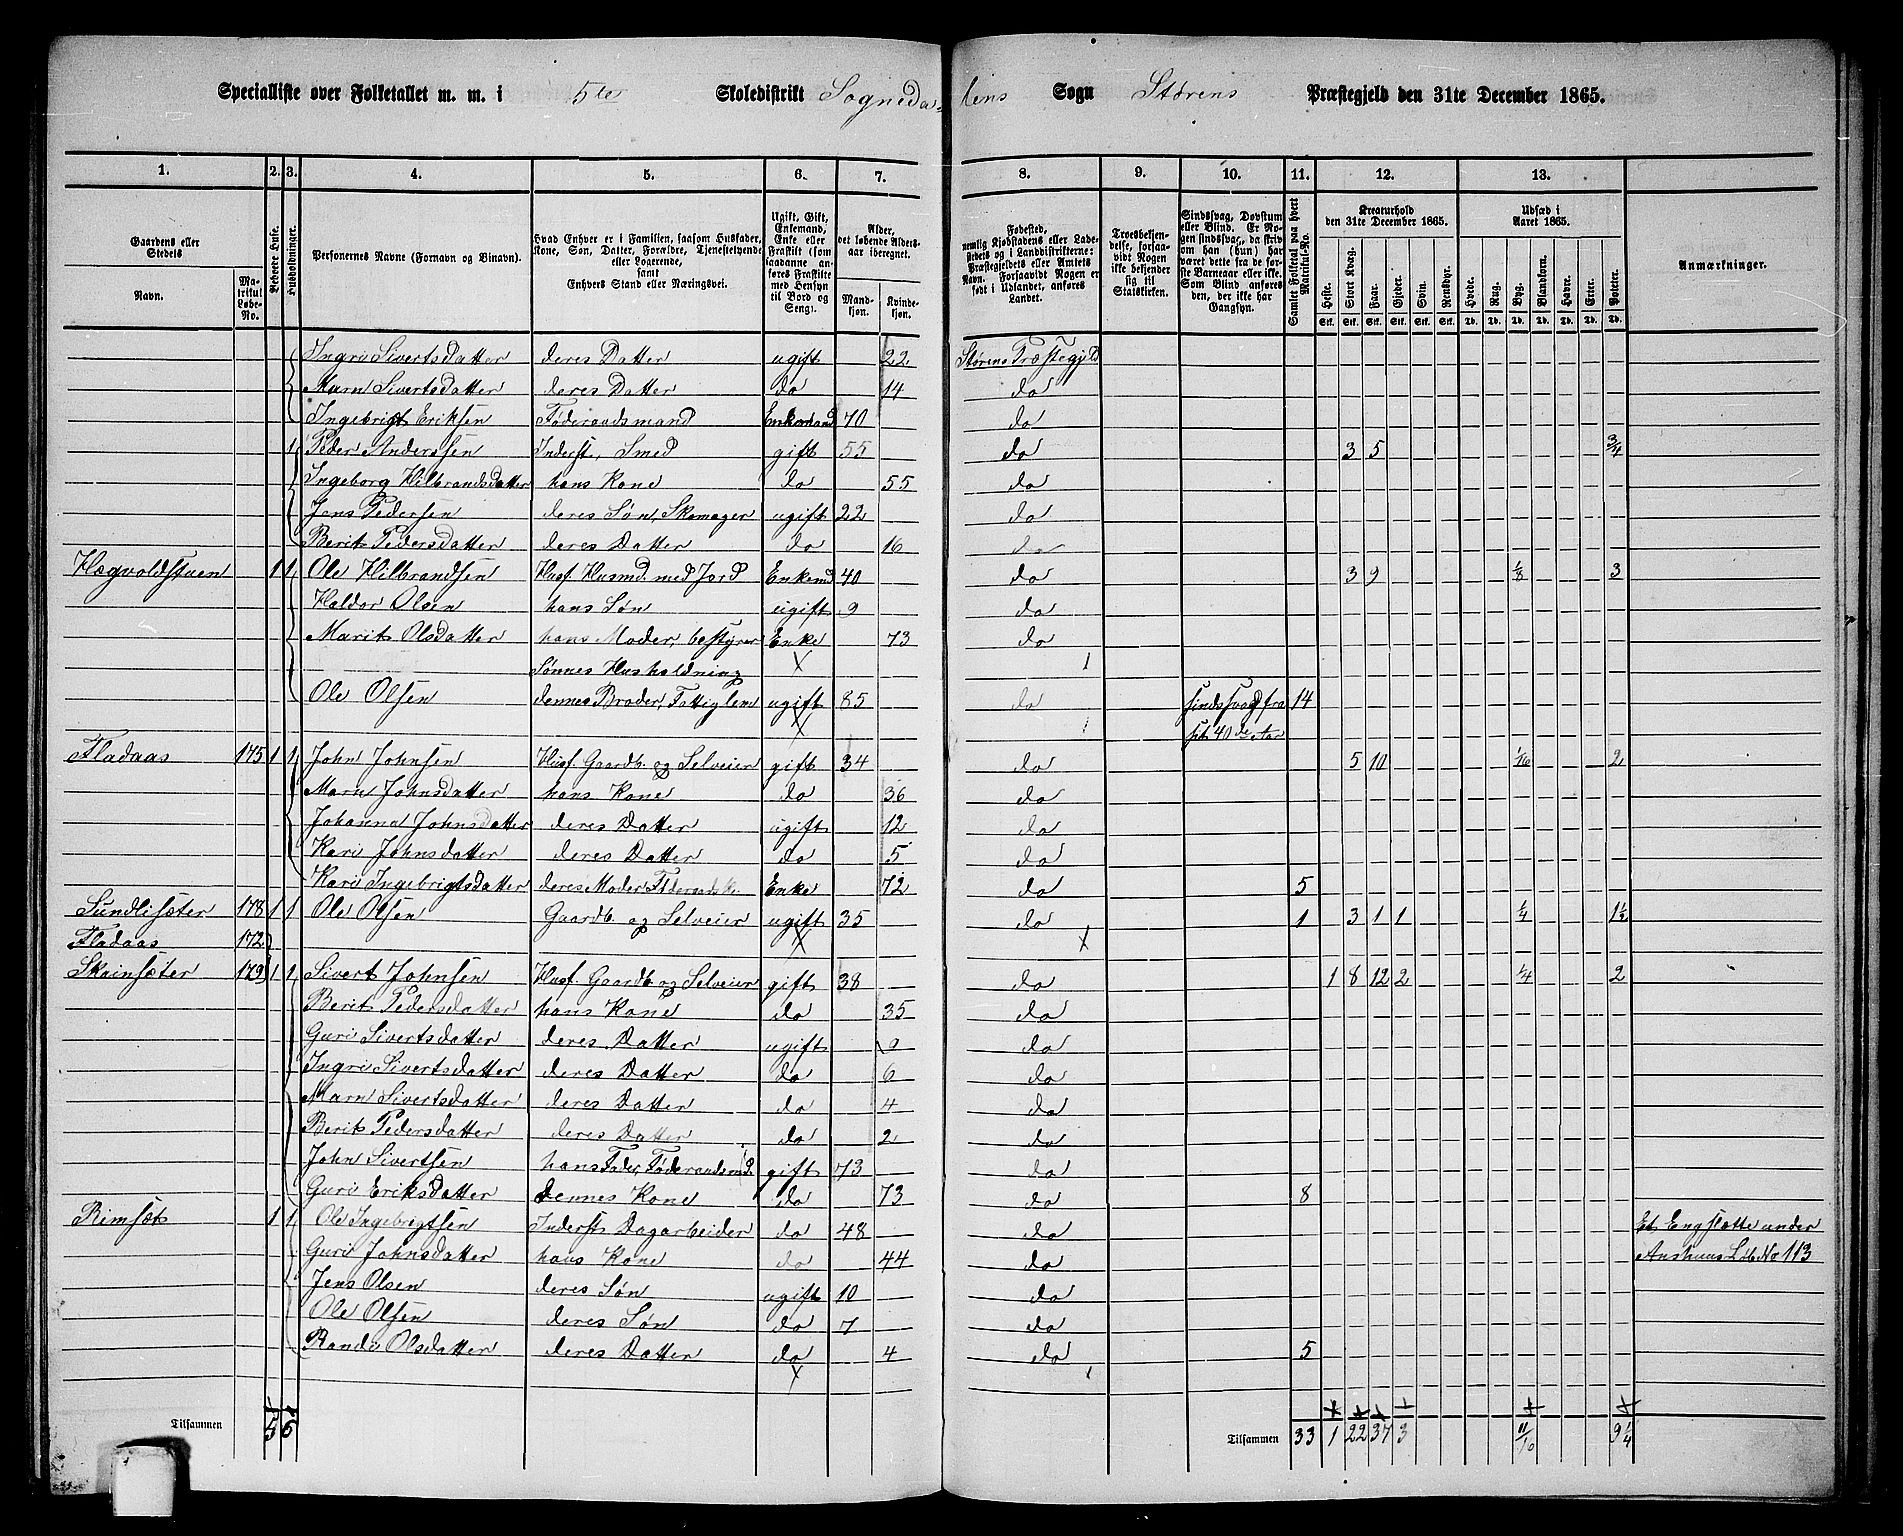 Specialliste over Folketallet m. m. i 5te Skoledistrikt Sognedalens Sogn Størens Præstegjeld den 31te December 1865.
1. 2. 3. 4. 5. 6. 7. 8. 9. 10. 11. 12. 13.
Gaardens eller Stedets
Navn.
Matrikul Løbe-No.
Beboede Huse.
Husholdninger.
Personernes Navne (Fornavn og Binavn).
Hvad Enhver er i Familien, saasom Husfader, Kone, Søn, Datter, Forældre, Tjenestetyende eller Logerende,
samt
Enhvers Stand eller Næringsvei.
Ugift, Gift, Enkemand, Enke eller Fraskilt (som saadanne anføres Fraskilte med Hensyn til Bord og Seng).
Alder, det løbende Aldersaar iberegnet.
Mandkjøn. Kvindekjøn.
Fødested, nemlig Kjøbstadens eller Ladestedets og i Landdistrikterne: Præstegjeldets eller Amtets Navn. Forsaavidt Nogen er født i Udlandet, anføres Landet.
Troesbekjendelse, forsaavidt Nogen ikke bekjender sig til Statskirken.
Sindssvag, Døvstum eller Blind. Er Nogen sindssvag, da skriv om han (hun) har været dette fra de første Barneaar eller ikke. Som Blind anføres den, der ikke har Gangsyn.
Samlet Folketal paa hvert Matrikuls-No.
Kreaturhold den 31te December 1865.
Heste. Stort Kvæg. Faar. Gjeder. Svin. Rensdyr.
Udsæd i Aaret 1865.
Hvede. Rug. Byg. Blandkorn. Havre. Erter. Poteter.
Anmærkninger.
Ingri Sivertsdatter deres Datter ugift 22 Størens Præstegjeld
Marn Sivertsdatter deres Datter do 14 do
Ingebrigt Eriksen Føderaadsmand Enkemand 70 do
1 Peder Anderssen Inderst, Smed gift 55 do 3 5 3/4
Ingeborg Hilbrandsdatter hans Kone do 55 do
Jens Pedersen deres Søn, Skomager ugift 22 do
Berit Pedersdatter deres Datter do 16 do
Hægvoldstuen 1 1 Ole Hilbrandsen Husf. Husmd. med Jord Enkemd 40 do 3 9 1/8 3
Haldor Olsen hans Søn ugift 9 do
Marit Olsdatter hans Moder, bestyrer Enke 73 do
Sønnes Husholdning
Ole Olsen dennes Broder, Fattiglem ugift 85 do sindssvag fra 14
sit 40de Aar
Fladaas 175 1 1 John Johnsen Husf. Gaardb. og Selveier gift 34 do 5 10 1/16 2
Marn Johnsdatter hans Kone do 36 do
Johanna Johnsdatter deres Datter ugift 12 do
Kari Johnsdatter deres Datter do 5 do
Kari Ingebrigtsdatter deres Moder Enke 72 do 5
Sundlisæter 178 1 1 Ole Olsen Gaardb. og Selveier ugift 35 do 1 3 1 1 1/4 1 1/2
Fladaas 172
Skrinsæter 179 1 1 Sivert Johnsen Husf. Gaardb. og Selveier gift 38 do 1 8 12 2 1/4 2
Berit Pedersdatter hans Kone do 35 do
Guri Sivertsdatter deres Datter ugift 9 do
Ingri Sivertsdatter deres Datter do 6 do
Marn Sivertsdatter deres Datter do 4 do
Berit Pedersdatter deres Datter do 2 do
John Sivertsen hans Fader, Føderaadsmd. gift 73 do
Guri Eriksdatter dennes Kone do 73 do 8
Rimsæt 1 1 Ole Ingebrigtsen Inderst Dagarbeider do 48 do Et Engslætte under
Guri Johnsdatter hans Kone do 44 do Løb. No 113
Jens Olsen deres Søn ugift 10 do
Ole Olsen deres Søn do 7 do
Randi Olsdatter deres Datter do 4 do 5
Tilsammen 5 6 Tilsammen 33 1 22 37 3 11/16 9 1/4